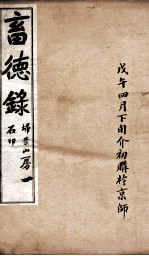 畜德錄
掃葉山房
石印
一
戊午四月下旬介初購於京師